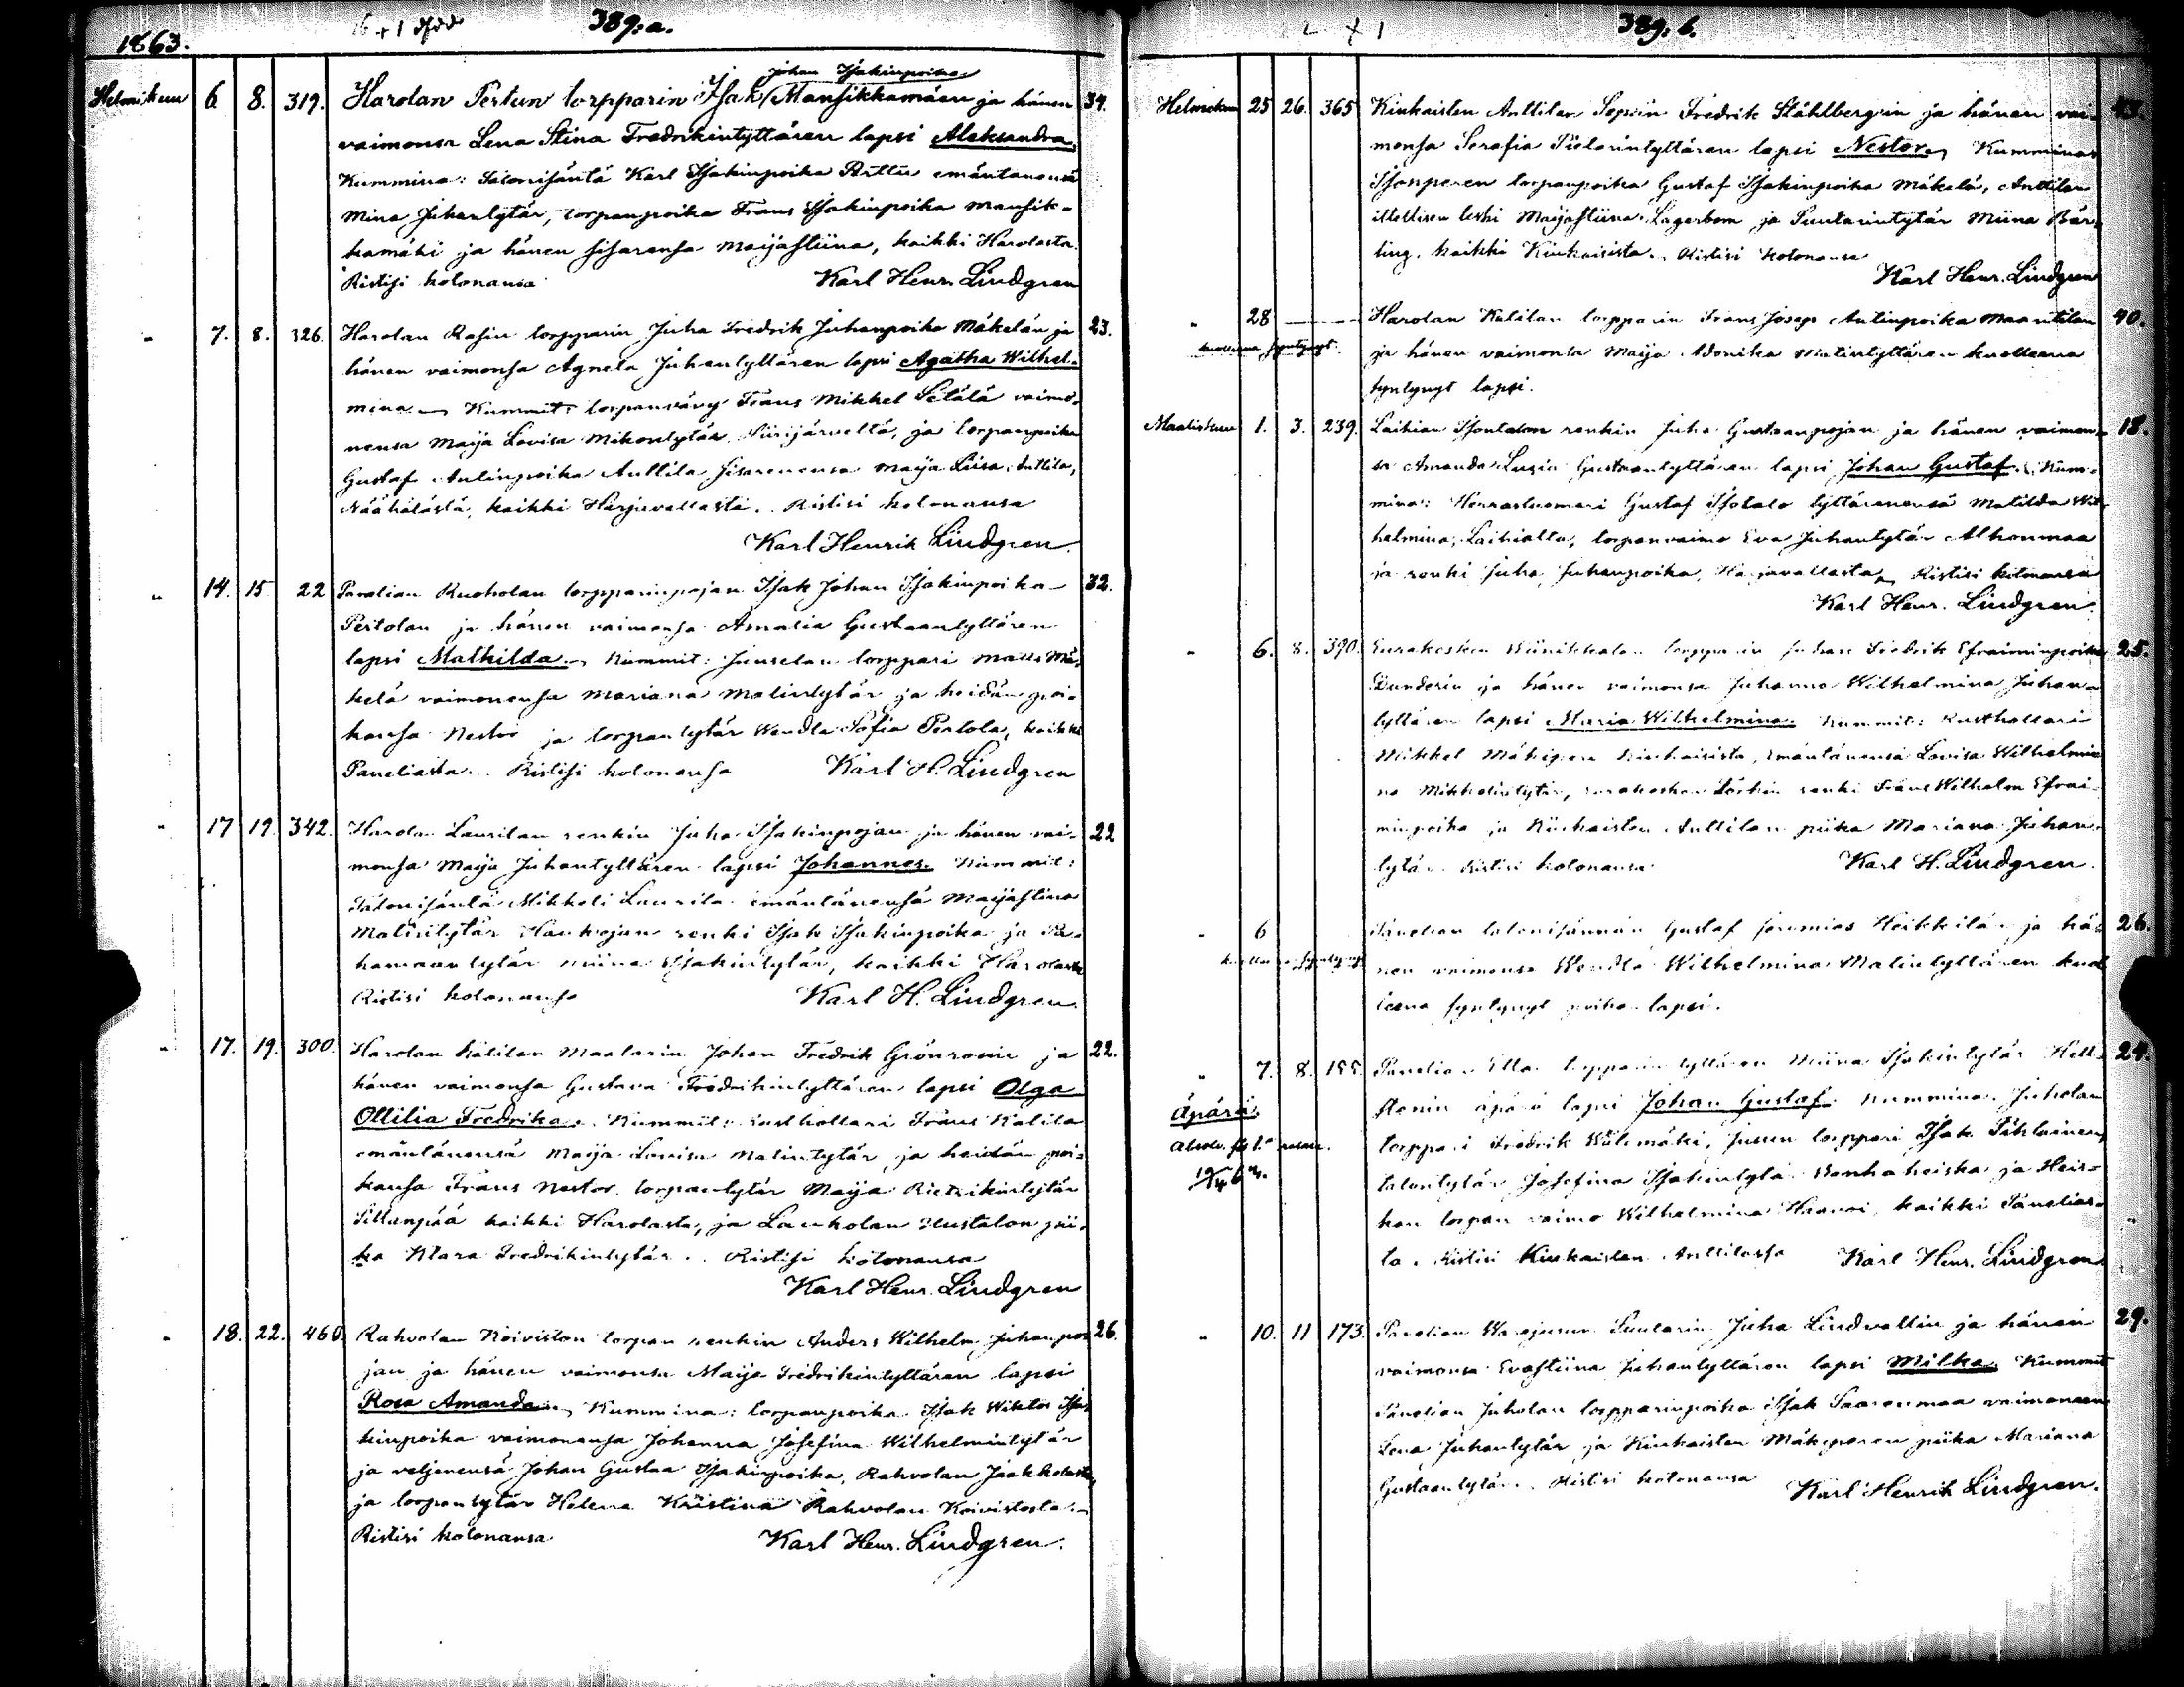 1863.
389:a.
Johan Isakinpoika
Helmikuu 6 8. 319. Harolan Pertun torpparin Isak Mansikkamäen ja hänen 34.
vaimonsa Lena Stina Fredrikintyttären lapsi Aleksandra.
Kummina: Talonisäntä Karl Isakinpoika Perttu emäntänensä
Mina Juhantytär, torpanpoika Frans Isakinpoika Mansik-
kamäki ja hänen sisarensa Maijastiina, kaikki Harolasta.
Ristisi kotonansa Karl Henr. Lindgren
" 7. 8. 326. Harolan Rasin torpparin Juha Fredrik Juhanpoika Mäkelän ja 23.
hänen vaimonsa Agneta Juhantyttären lapsi Agatha Wilhel-
mina. Kummit: torpanvävy Frans Mikkel Setälä vaimo-
nensa Maija Lovisa Mikontytär Siirijärveltä, ja torpanpoika
Gustaf Antinpoika Anttila sisarenensa Maija Liisa Anttila,
kaikki Harjavallasta. Ristisi kotonansa
Karl Henrik Lindgren.
" 14. 15 22 Panelian Ruoholan torpparinpojan Isak Johan Isakinpoika 32.
Pertolan ja hänen vaimonsa Amalia Gustaantyttären
lapsi Mathilda. Kummit: Juuselan torppari Matts Mä-
kelä vaimonensa Mariana Matintytär ja heidän poi-
kansa Nestor ja torpantytär Wendla Sofia Pertola, kaikki
Paneliasta. Ristisi kotonansa Karl H. Lindgren
" 17 19. 342. Harolan Laurilan renkin Juha Isakinpojan ja hänen vai- 22
monsa Maija Juhantyttären lapsi Johannes. Kummit:
Talonisäntä Mikkeli Laurila emäntänensä Maijastina
Matintytär Haukojan renki Isak Isakinpoika ja
Miina Isakintytär, kaikki Harolasta
Ristisi kotonansa Karl H. Lindgren.
" 17. 19. 300. Harolan Kalilan Maalarin Johan Fredrik Grönroosin ja 22.
hänen vaimonsa Gustava Fredrikintyttären lapsi Olga
Ottilia Fredrika. Kummit: rusthollari Frans Kalila
emäntänensä Maija Lovisa Matintytär ja heidän poi-
kansa Frans Nestor torpantytär Maija
kaikki Harolasta, ja Laukolan Uustalon pii-
ka Klara Fredrikintytär. Ristisi kotonansa
Karl Henr. Lindgren
" 18. 22. 460. Rahvolan Koiviston torpan renkin Anders Wilhelm Juhanpo- 26.
jan ja hänen vaimonsa Maija Fredrikintyttären lapsi
Rosa Amanda. Kummina: torpanpoika Isak Wiktor Isa-
kinpoika vaimonensa Johanna Josefina Wilhelmintytär
ja veljenensä Johan Gustaa Isakinpoika, Rahvolan Jaakkolasta,
ja torpantytär Helena Kristina Rahvolan Koivistosta.
Ristisi kotonansa Karl Henr. Lindgren.
389. b.
Helmikuu 25 26. 365 Kiukaisten Anttilan Sepän Fredrik Ståhlbergin ja hänen vai-
monsa Serafia Tietorintyttären lapsi Nestor. Kummina:
torpanpoika Gustaf Isakinpoika Mäkelä, Anttilan
itsellisen leski Maijastiina Lagerbom ja Puutarintytär Miina Bär-
ling, kaikki Kiukaisista. Ristisi kotonansa
Karl Henr. Lindgren
" 28 Harolan Kalilan torpparin Frans Josep Antinpoika Maantilan 40.
kuolleena syntynyt. ja hänen vaimonsa Maija Matintyttären kuolleena
syntynyt lapsi.
Maaliskuu 1. 3. 239. Laihian Isontalon renkin Juha Gustaanpojan ja hänen vaimon- 18.
sa Amanda Lusia Gustaantyttären lapsi Johan Gustaf. Kum-
mina: Herrastuomari Gustaf Isotalo tyttärenensä Matilda Wil-
helmina, Laihialta, torpanvaimo Eva Juhantytär Alhonmaa
ja renki Juha Juhanpoika, Harjavallasta. Ristisi kotonansa
Karl Henr. Lindgren.
" 6. 8. 390. Eurakosken Wiinikkalan torpparin Juhan Fredrik Efraiminpoika 25.
Dunderin ja hänen vaimonsa Juhanna Wilhelmina Juhan-
tyttären lapsi Maria Wilhelmina. Kummit: Rusthollari
Mikkel Mäkipere Kiukaisista, emäntänensä Lovisa Wilhelmi-
na Mikkelintytär, Eurakosken renki Frans Wilhelm Efrai-
minpoika ja Kiukaisten Anttilan piika Mariana Juhan-
tytär. Ristisi kotonansa Karl H. Lindgren.
" 6 Panelian talonisännän Gustaf Jeremias Heikkilän ja hä- 26.
kuolleena syntynyt nen vaimonsa Wendla Wilhelmina Matintyttären kuol-
leena syntynyt poika-lapsi.
" 7. 8. 155. Panelian torpparin tyttären Miina Isakintytär Hell- 24.
Äpärä stenin äpärä lapsi Johan Gustaf. Kummina: Juholan
torppari Fredrik Wälimäki, Juusen torppari Isak Pihlainen,
talontytär Josefina Isakintytär Vanhakeiska ja Heis-
kan torpan vaimo Wilhelmina Haansi, kaikki Panelias-
ta. Ristisi Kiukaisten Anttilassa Karl Henr. Lindgren
" 10. 11 173. Panelian Puutarin Juha Lindvallin ja hänen 29.
vaimonsa Evastiina Juhantyttären lapsi Milka. Kummit:
Panelian Juholan torpparinpoika Isak Saarenmaa vaimonensa
Lena Juhantytär ja Kiukaisten Mäkiperen piika Mariana
Gustaantytär. Ristisi kotonansa Karl Henrik Lindgren.